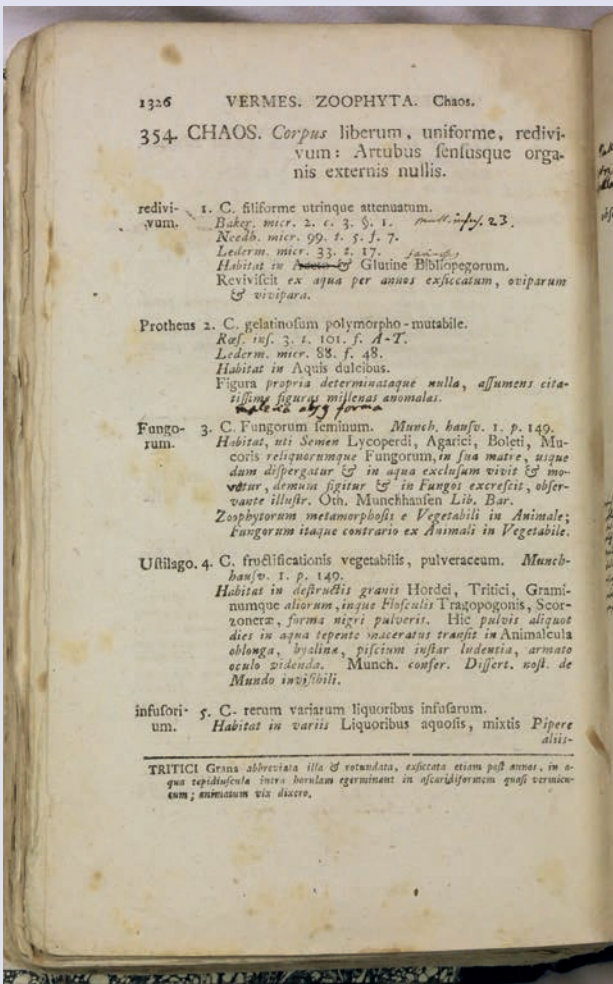 1326 VERMES. ZOOPHYTA. Chaos.
354. CHAOS. Corpus liberum, uniforme, redivi-
vum: Artubus ſenſusque orga-
nis externis nullis.
redivi- 1. C. filiforme utrinque attenuatum.
vum. Baker. micr. 2. c. 3. §. 1. mull. infus. 23.
Needh. micr. 99. t. 5. f. 7.
Lederm. micr. 33. t. 17.
Habitat in Aceto & Glutine Bibliopegorum.
Reviviſcit ex aqua per annos exſiccatum, oviparum
& vivipara.
Protheus 2. C. gelatinoſum polymorpho-mutabile.
Rœſ. inſ. 3. t. 101. f. A-T.
Lederm. micr. 88. f. 48.
Habitat in Aquis dulcibus.
Figura propria determinataque nulla, aſſumens cita-
tiſſime figuras millenas anomalas.
forma
Fungo- 3. C. Fungorum ſeminum. Munch. hauſv. 1. p. 149.
rum. Habitat, uti Semen Lycoperdi, Agarici, Boleti, Mu-
coris reliquorumque Fungorum, in ſua matre, usque
dum diſpergatur & in aqua excluſum vivit & mo-
vetur, demum figitur & in Fungos excreſcit, obſer-
vante illuſtr. Oth. Munchhauſen Lib. Bar.
Zoophytorum metamorphoſis e Vegetabili in Animale;
Fungorum itaque contrario ex Animali in Vegetabile.
Uſtilago. 4. C. fructificationis vegetabilis, pulveraceum. Munch-
hauſv. 1. p. 149.
Habitat in deſtructis granis Hordei, Tritici, Grami-
numque aliorum, inque Floſculis Tragopogonis, Scor-
zoneræ, forma nigri pulveris. Hic pulvis aliquot
dies in aqua tepente maceratus tranſit in Animalcula
oblonga, hyalina, piſcium inſtar ludentia, armato
oculo videnda. Munch. confer. Diſſert. noſt. de
Mundo inviſibili.
infuſori- 5. C. rerum variarum liquoribus infuſarum.
um. Habitat in variis Liquoribus aquoſis, mixtis Pipere
aliis-
TRITICI Grana abbreviata illa & rotundata, exſiccata etiam poſt annos, in a-
qua tepidiuſcula intra horulam egerminant in aſcaridiformem quaſi vermicu-
cum; animatum vix dixero.